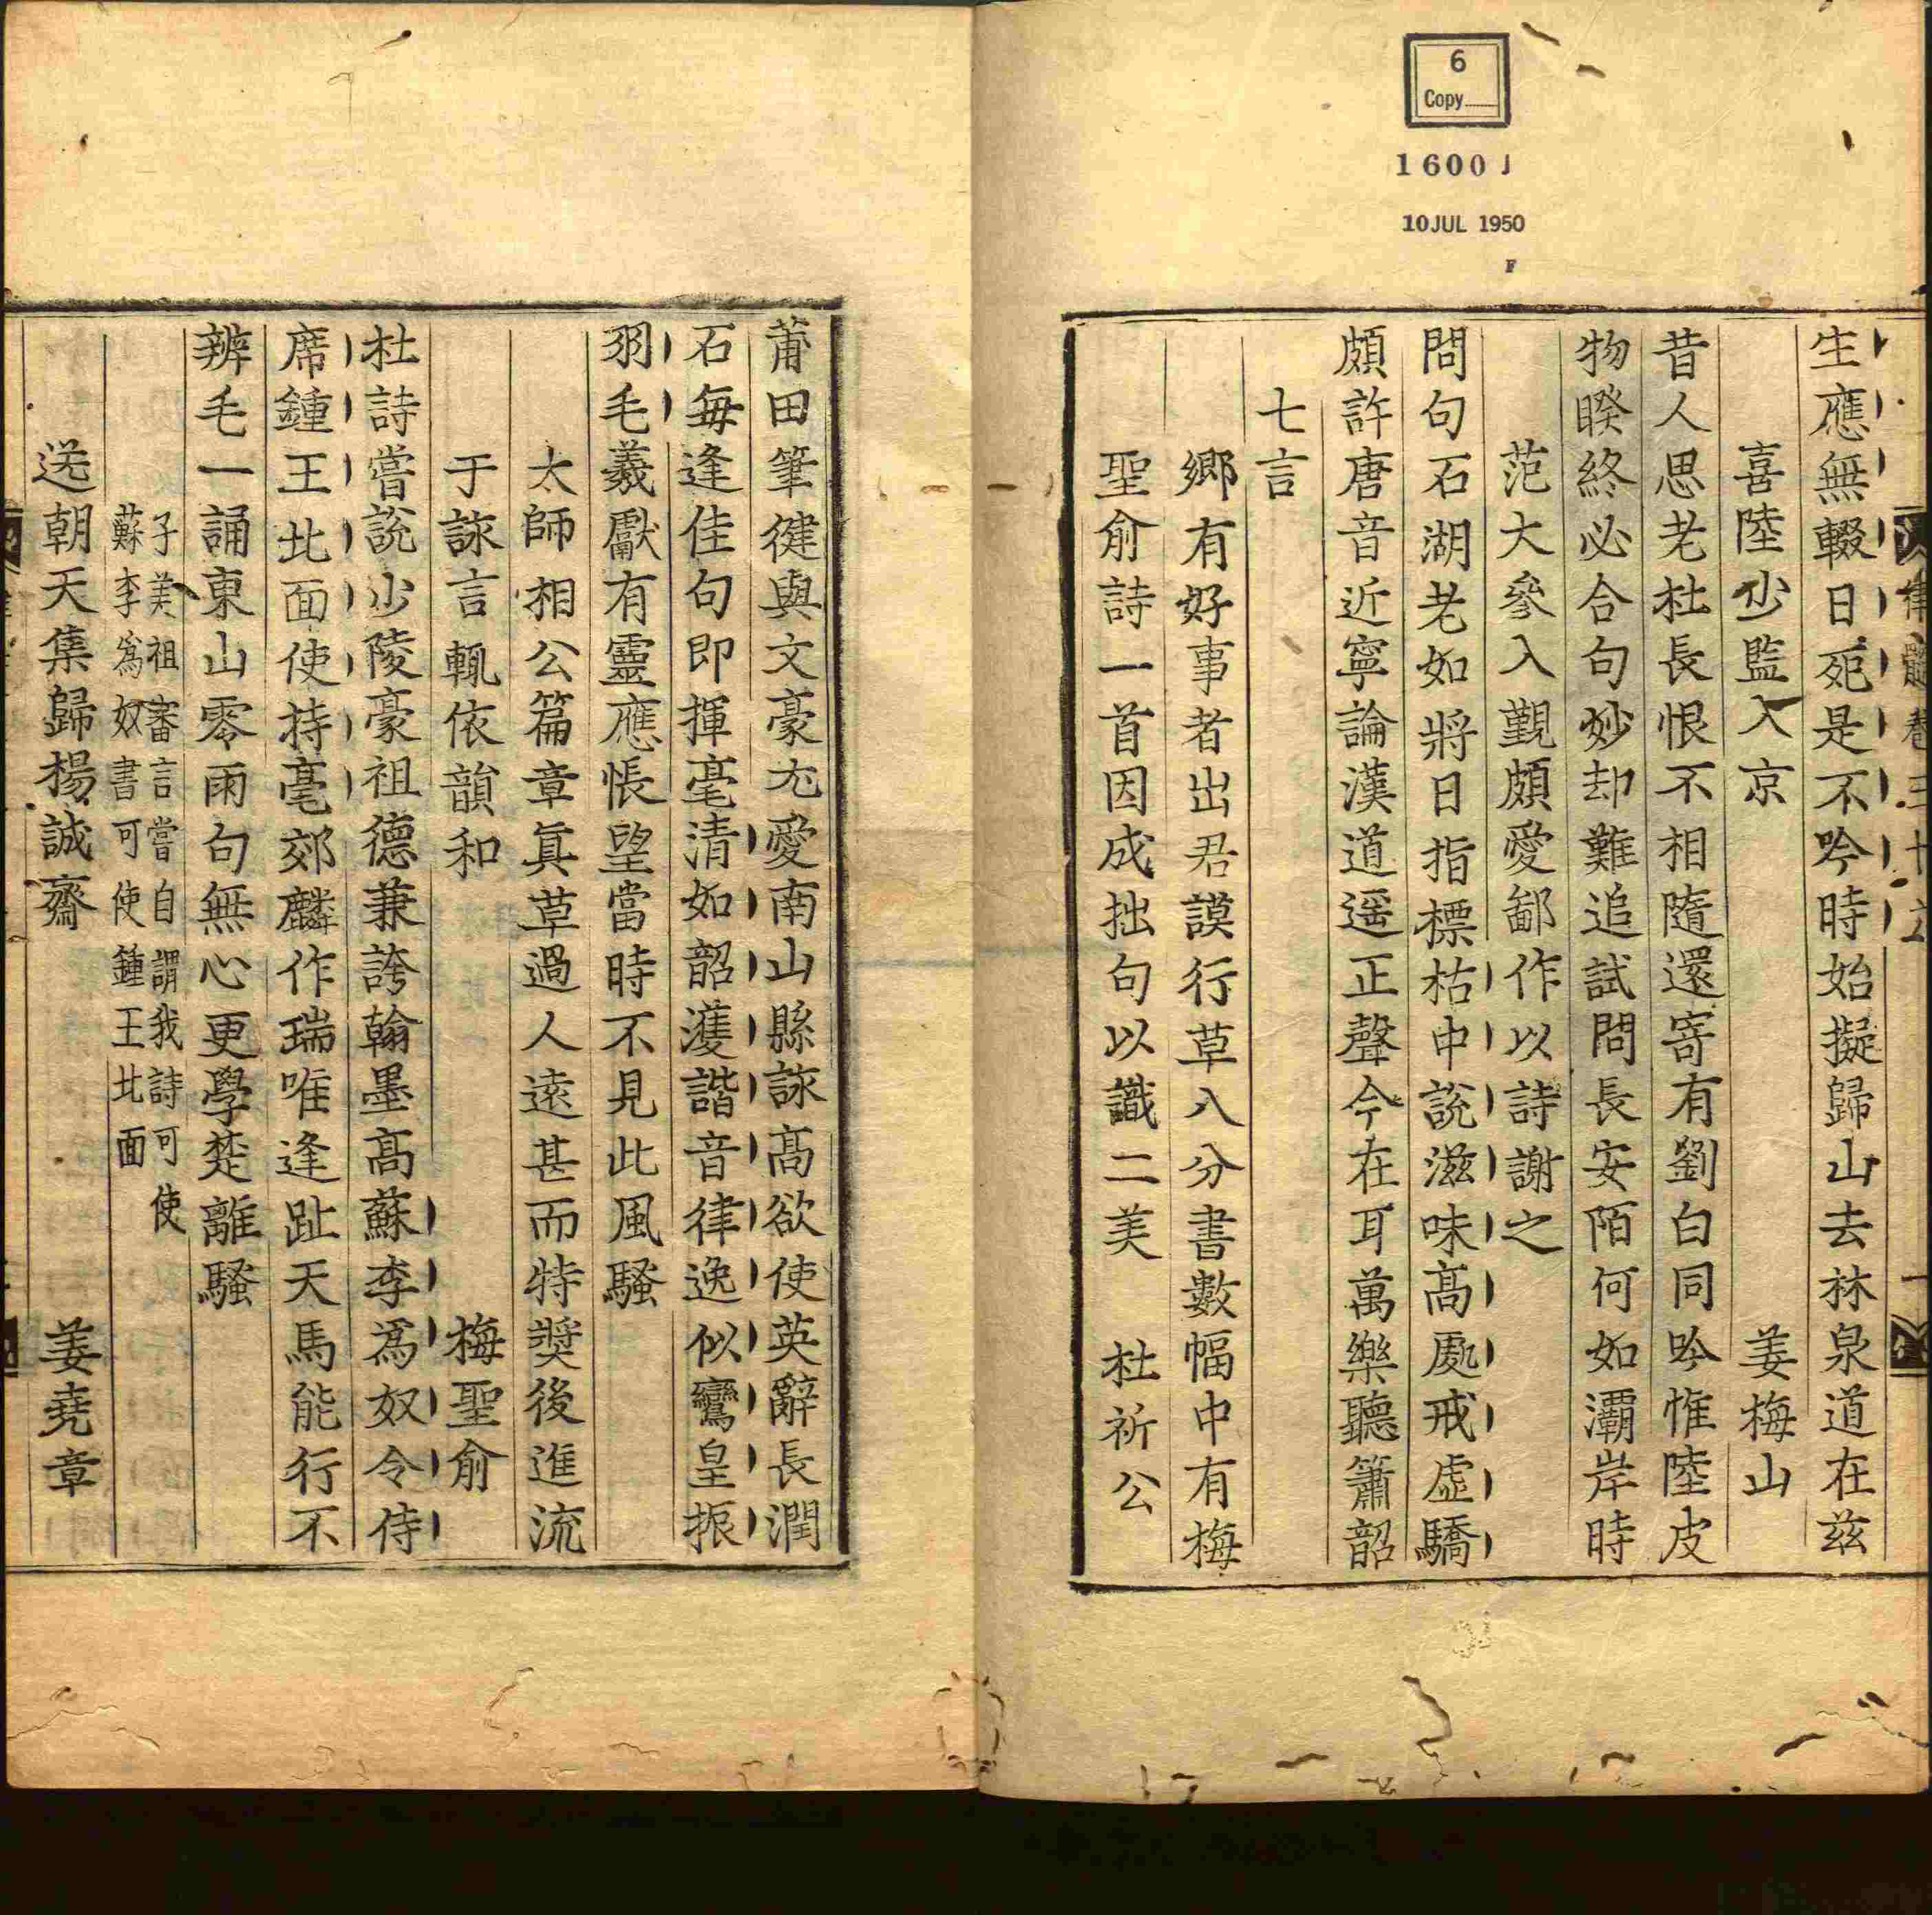 6
Copy
1600
10 JUL 1950
F
律髓卷三十六
生應無輟日死是不吟時始擬歸山去林泉道在茲
喜陸少監入京 姜梅山
昔人思老杜長恨不相隨還寄有劉白同吟惟陸皮
物睽終必合句妙却難追試問長安陌何如灞岸時
范大參入觀頗愛鄙作以詩謝之
問句石湖老如將日指標枯中說滋味髙處戒虛驕
頗許唐音近寧論漢道遥正聲今在耳萬樂聽簫韶
七言
鄉有好事者出君謨行草八分書數幅中有梅
聖俞詩一首因成拙句以識二美 杜祈公
莆田筆健與文豪尤愛南山縣詠髙欲使英辭長潤
石每逢佳句即揮毫清如韶濩諧音律逸似鸞皇振
羽毛羲獻有靈應悵望當時不見此風騷
太師相公篇章真草過人遠甚而特奬後進流
于詠言輒依韻和 梅聖俞
杜詩嘗說少陵豪祖德兼誇翰墨髙蘇李為奴令侍
席鍾王北面使持毫郊麟作瑞唯逢趾天馬能行不
辨毛一誦東山零雨句無心更學楚離騷
子美祖審言嘗自謂我詩可使
蘇李為奴書可使鍾王北面
送朝天集歸楊誠齋 姜堯章